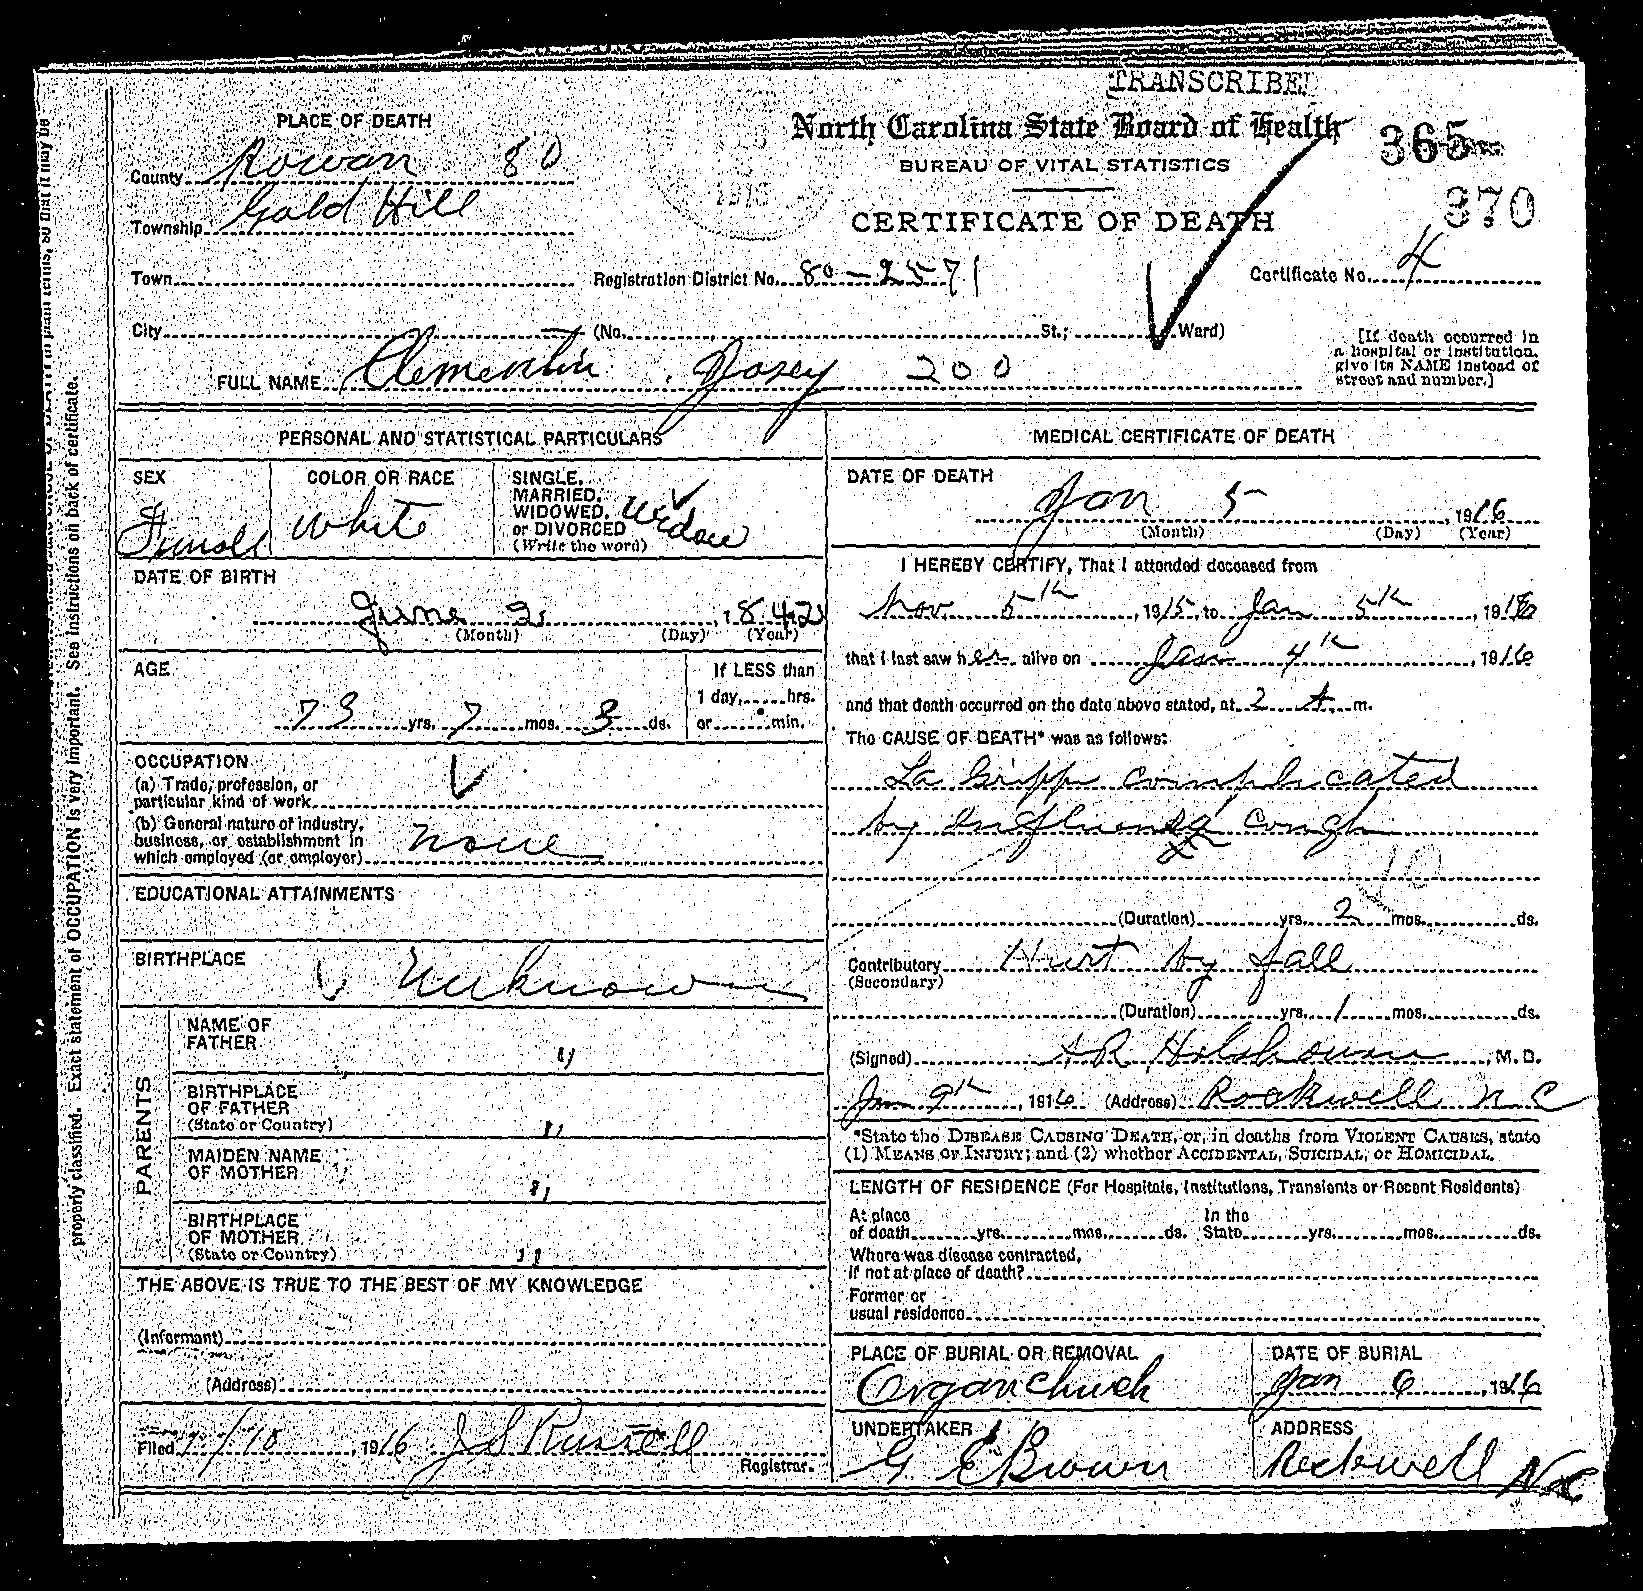 TRANSCRIBE
PLACE OF DEATH
County Rowan 80
Township Gold Hill
Town
City (No. St.; Ward)
North Carolina State Board of Health
BUREAU OF VITAL STATISTICS
CERTIFICATE OF DEATH
365
370
Registration District No. 80-2571
Certificate No. 4
[If death occurred in
a hospital or institution,
give its NAME instead of
street and number.]
FULL NAME Clementin Josey 200
PERSONAL AND STATISTICAL PARTICULARS
SEX
Female
COLOR OR RACE
White
SINGLE,
MARRIED,
WIDOWED,
or DIVORCED
(Write the word)
Widow
DATE OF BIRTH
June 2, 1842
(Month) (Day) (Year)
AGE
73 yrs. 7 mos. 3 ds.
If LESS than
1 day, hrs.
or min.
OCCUPATION
(a) Trade, profession, or
particular kind of work
(b) General nature of industry,
business, or establishment in
which employed (or employer) none
EDUCATIONAL ATTAINMENTS
BIRTHPLACE
Unknown
PARENTS
NAME OF
FATHER "
BIRTHPLACE
OF FATHER
(State or Country) "
MAIDEN NAME
OF MOTHER "
BIRTHPLACE
OF MOTHER
(State or Country) "
THE ABOVE IS TRUE TO THE BEST OF MY KNOWLEDGE
(Informant)
(Address)
Filed 1/10, 1916 J S Russell
Registrar.
MEDICAL CERTIFICATE OF DEATH
DATE OF DEATH
Jan 5, 1916
(Month) (Day) (Year)
I HEREBY CERTIFY, That I attended deceased from
Nov. 5th, 1915, to Jan 5th, 1916
that I last saw her alive on Jan 4th, 1916
and that death occurred on the date above stated, at 2 A. m.
The CAUSE OF DEATH* was as follows:
La Grippe complicated
by Influenza cough
10
(Duration) yrs. 2 mos. ds.
Contributory Hurt by fall
(Secondary)
(Duration) yrs. 1 mos. ds.
(Signed) A R Holshouser, M. D.
Jan 9th, 1916 (Address) Rockwell N C
*State the DISEASE CAUSING DEATH, or, in deaths from VIOLENT CAUSES, state
(1) MEANS OF INJURY; and (2) whether ACCIDENTAL, SUICIDAL, or HOMICIDAL.
LENGTH OF RESIDENCE (For Hospitals, Institutions, Transients or Recent Residents)
At place In the
of death yrs. mos. ds. State yrs. mos. ds.
Where was disease contracted,
if not at place of death?
Former or
usual residence
PLACE OF BURIAL OR REMOVAL
Organ Church
DATE OF BURIAL
Jan 6, 1916
UNDERTAKER
G E Brown
ADDRESS
Rockwell NC
properly classified. Exact statement of OCCUPATION is very important. See instructions on back of certificate.